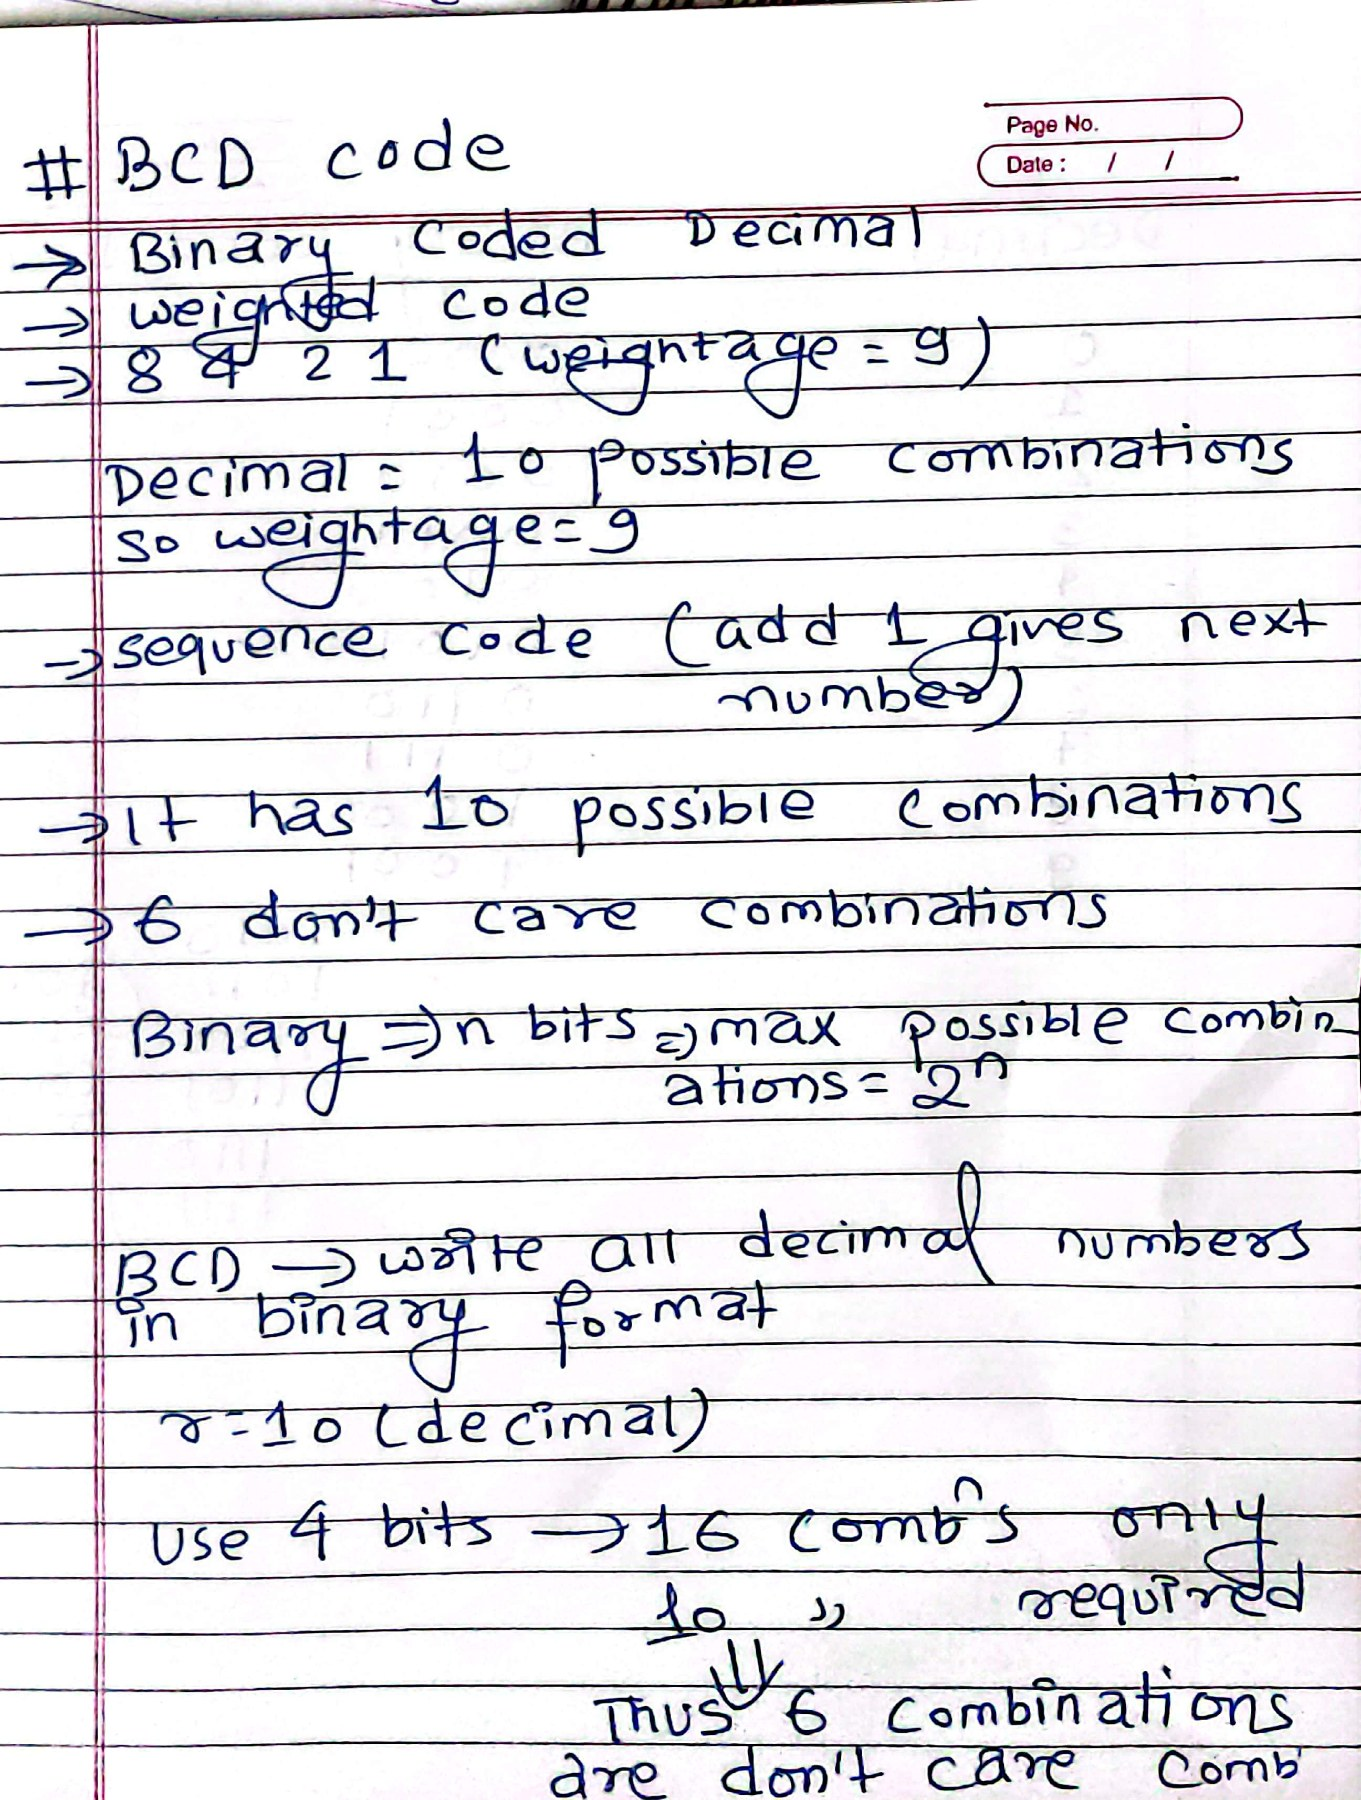 Page No.
Date : / /
# BCD code
→ Binary Coded Decimal
→ weighted code
→ 8 4 2 1 (weightage = 9)
Decimal = 10 possible combinations
so weightage = 9
→ sequence code (add 1 gives next
number)
→ It has 10 possible combinations
→ 6 don't care combinations
Binary ⇒ n bits ⇒ max possible combin
ations = 2ⁿ
BCD → write all decimal numbers
in binary format
r = 10 (decimal)
Use 4 bits → 16 combⁿs only
10 " required
⇓
Thus 6 combinations
are don't care comb'